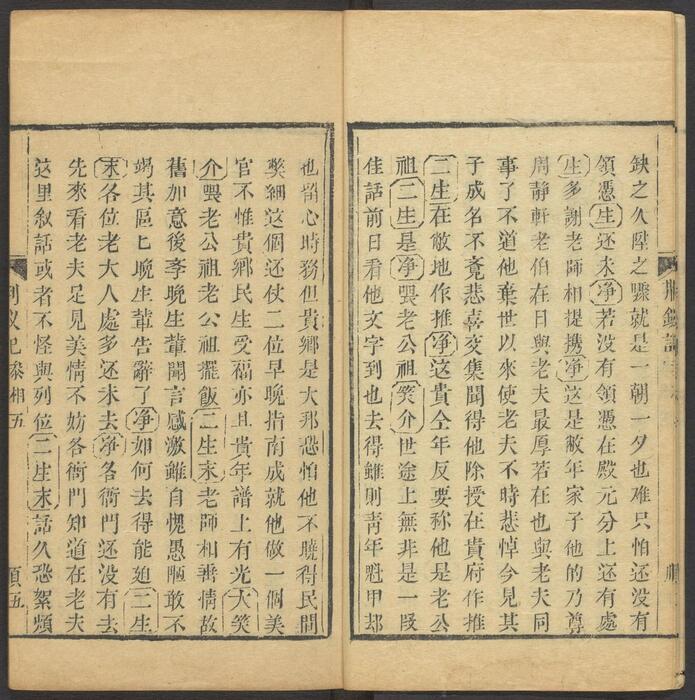 缺之久陞之驟就是一朝一夕也难只怕还没有
領憑生还未净若没有領憑在殿元分上还有處
生多謝老師相提携净这是敝年家子他的乃尊
周静軒老伯在日與老夫最厚若在也與老夫同
事了不道他棄世以來使老夫不時悲悼今見其
子成名不竟悲喜交集聞得他除授在貴府作推
二生在敝地作推净这貴仝年反要称他是老公
祖二生是净喂老公祖笑介世途上無非是一段
佳話前日看他文字到也去得雖則青年魁甲却
也畱心時務但貴鄉是大郡恐怕他不曉得民間
獘細这個还仗二位早晚指南成就他做一個美
官不惟貴鄉民生受福亦且貴年譜上有光大笑
介喂老公祖老公祖擺飯二生末老師相善情故
舊加意後李晚生輩聞言感激雖自愧愚陋敢不
竭其區匕晚生輩告辭了净如何去得能廹二生
末各位老大人處多还未去净各衙門还没有去
先來看老夫足見美情不妨各衙門知道在老夫
这里叙話或者不怪與列位二生末話久恐絮煩
相五
頂五